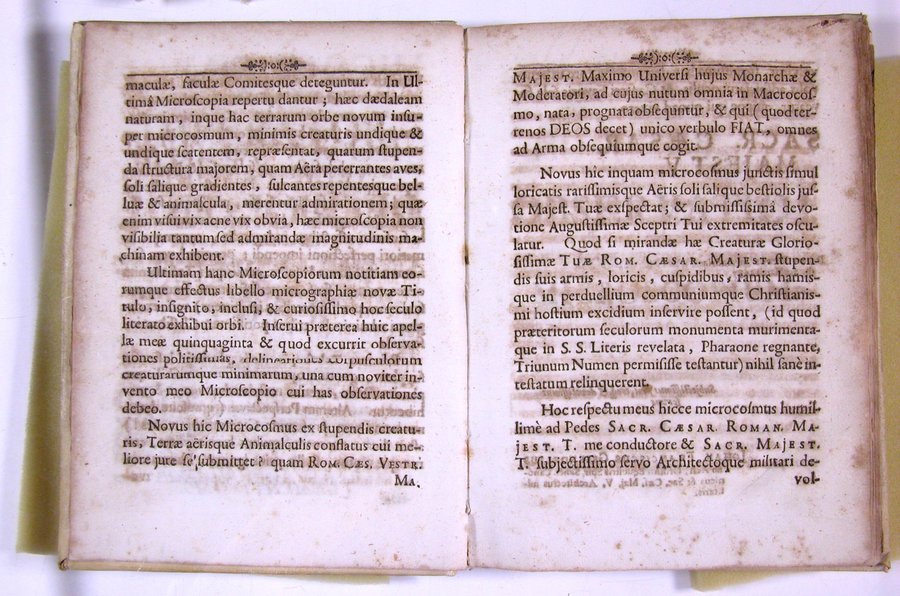 maculæ, faculæ Comitesque deteguntur. In Ul-
timâ Microscopia repertu dantur; hæc dædaleam
naturam, inque hac terrarum orbe novum insu-
per microcosmum, minimis creaturis undique &
undique ſcatentem, repræſentat, quarum ſtupen-
da ſtructura majorem, quam Aëra pererrantes aves,
ſoli ſalique gradientes, ſulcantes repentesque bel-
luæ & animalcula, merentur admirationem; quæ
enim viſui vix ac ne vix obvia, hæc microſcopia non
viſibilia tantum ſed admirandæ magnitudinis ma-
chinam exhibent.
Ultimam hanc Microſcopiorum notitiam eo-
rumque effectus libello micrographiæ novæ Ti-
tulo, inſignito, incluſi, & curioſiſſimo hoc ſeculo
literato exhibui orbi. Inſerui præterea huic apel-
læ meæ quinquaginta & quod excurrit obſerva-
tiones politiſſimas, delineationes corpuſculorum
creaturarumque minimarum, una cum noviter in-
vento meo Microſcopio cui has obſervationes
debeo.
Novus hic Microcoſmus ex ſtupendis creatu-
ris, Terræ aërisque Animalculis conflatus cui me-
liore jure ſe ſubmittet? quam ROM. CÆS. VESTR.
MA-
):o:(
MAJEST. Maximo Univerſi hujus Monarchæ &
Moderatori, ad cujus nutum omnia in Macrocoſ-
mo, nata, prognata obſequuntur, & qui (quod ter-
renos DEOS decet) unico verbulo FIAT, omnes
ad Arma obſequiumque cogit.
Novus hic inquam microcoſmus junctis ſimul
loricatis rariſſimisque Aëris ſoli ſalique beſtiolis juſ-
ſa Majeſt. Tuæ exſpectat; & ſubmiſſiſſimâ devo-
tione Auguſtiſſimæ Sceptri Tui extremitates oſcu-
latur. Quod ſi mirandæ hæ Creaturæ Glorio-
ſiſſimæ TUÆ ROM. CÆSAR. MAJEST. ſtupen-
dis ſuis armis, loricis, cuſpidibus, ramis hamis-
que in perduellium communiumque Chriſtianis-
mi hoſtium excidium inſervire poſſent, (id quod
præteritorum ſeculorum monumenta murimenta-
que in S. S. Literis revelata, Pharaone regnante,
Triunum Numen permiſiſſe teſtantur) nihil ſanè in-
teſtatum relinquerent.
Hoc reſpectu meus hicce microcoſmus humil-
limè ad Pedes SACR. CÆSAR. ROMAN. MA-
JEST. T. me conductore & SACR. MAJEST.
T. ſubjectiſſimo ſervo Architectoque militari de-
vol-